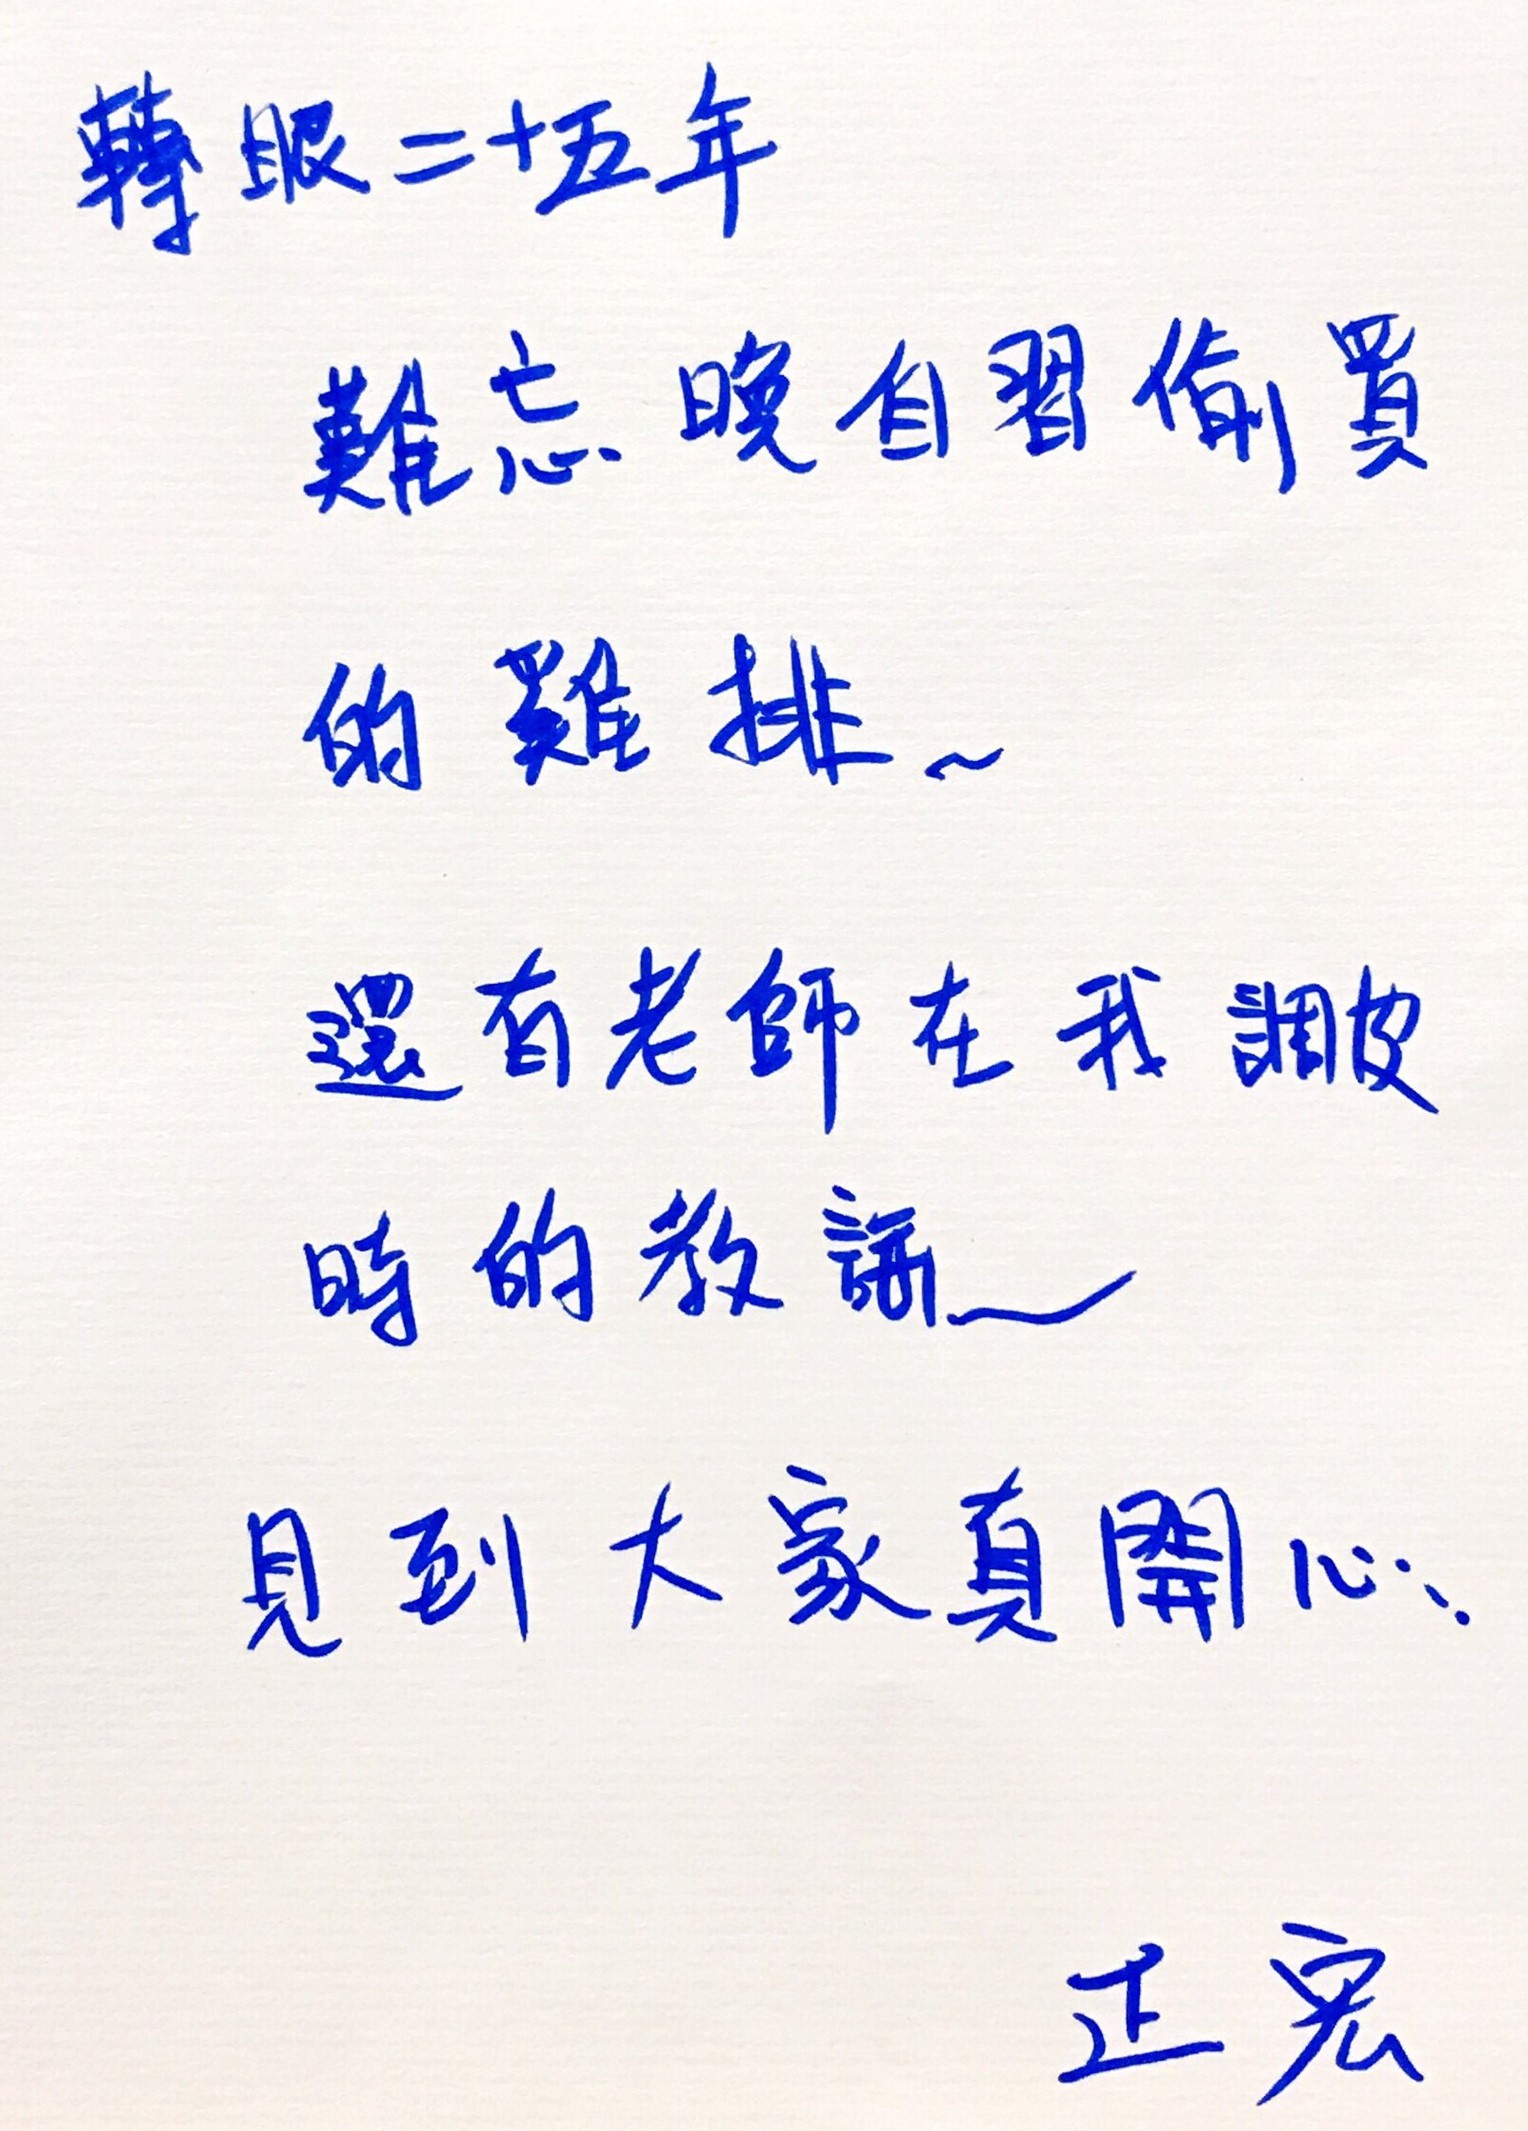 轉眼二十五年
難忘晚自習偷買
的雞排~
還有老師在我調皮
時的教誨~
見到大家真開心...
正宏